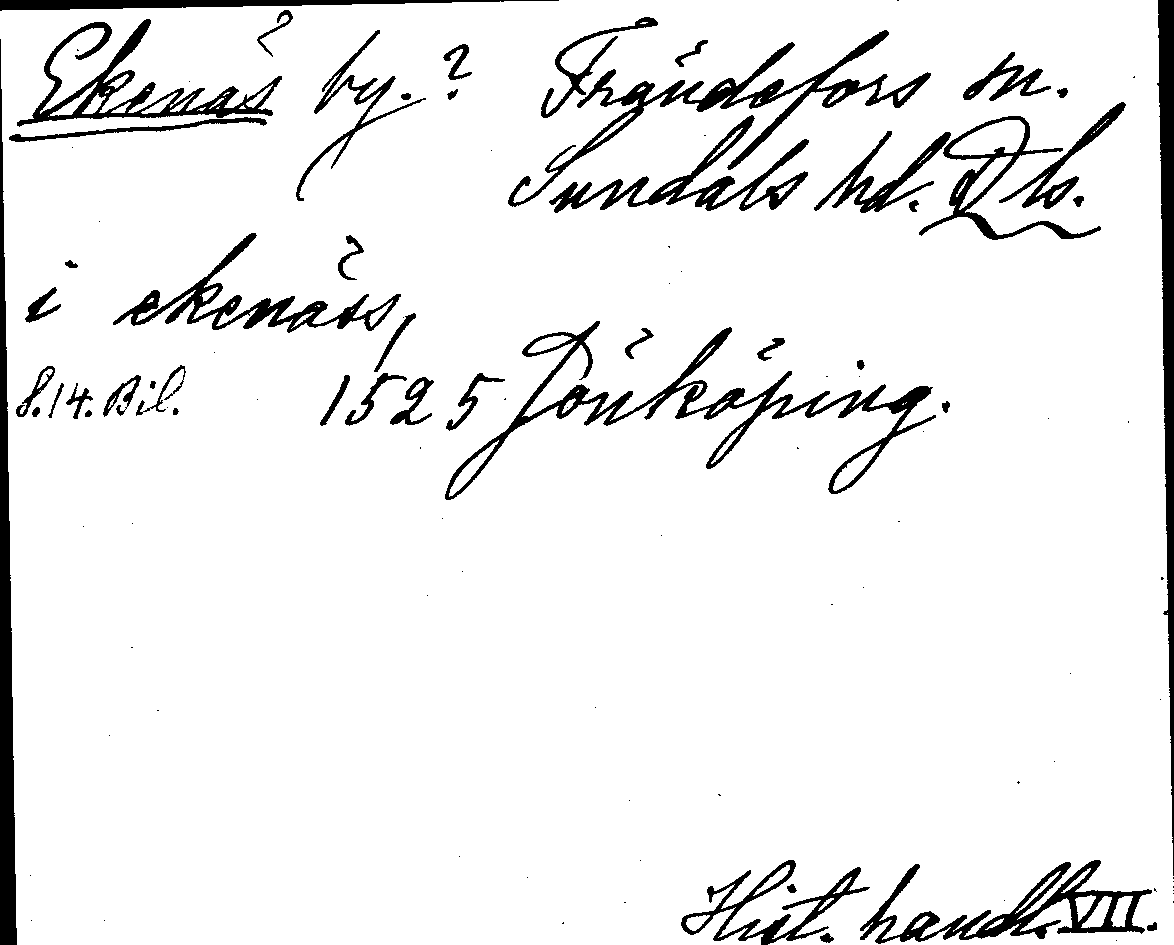 Ekenäs by.? Frändefors sn.
Sundals hd. Dls.
i ekenäss,
S.14. Bil. 1525 Jönköping.
Hist. handl. VII.